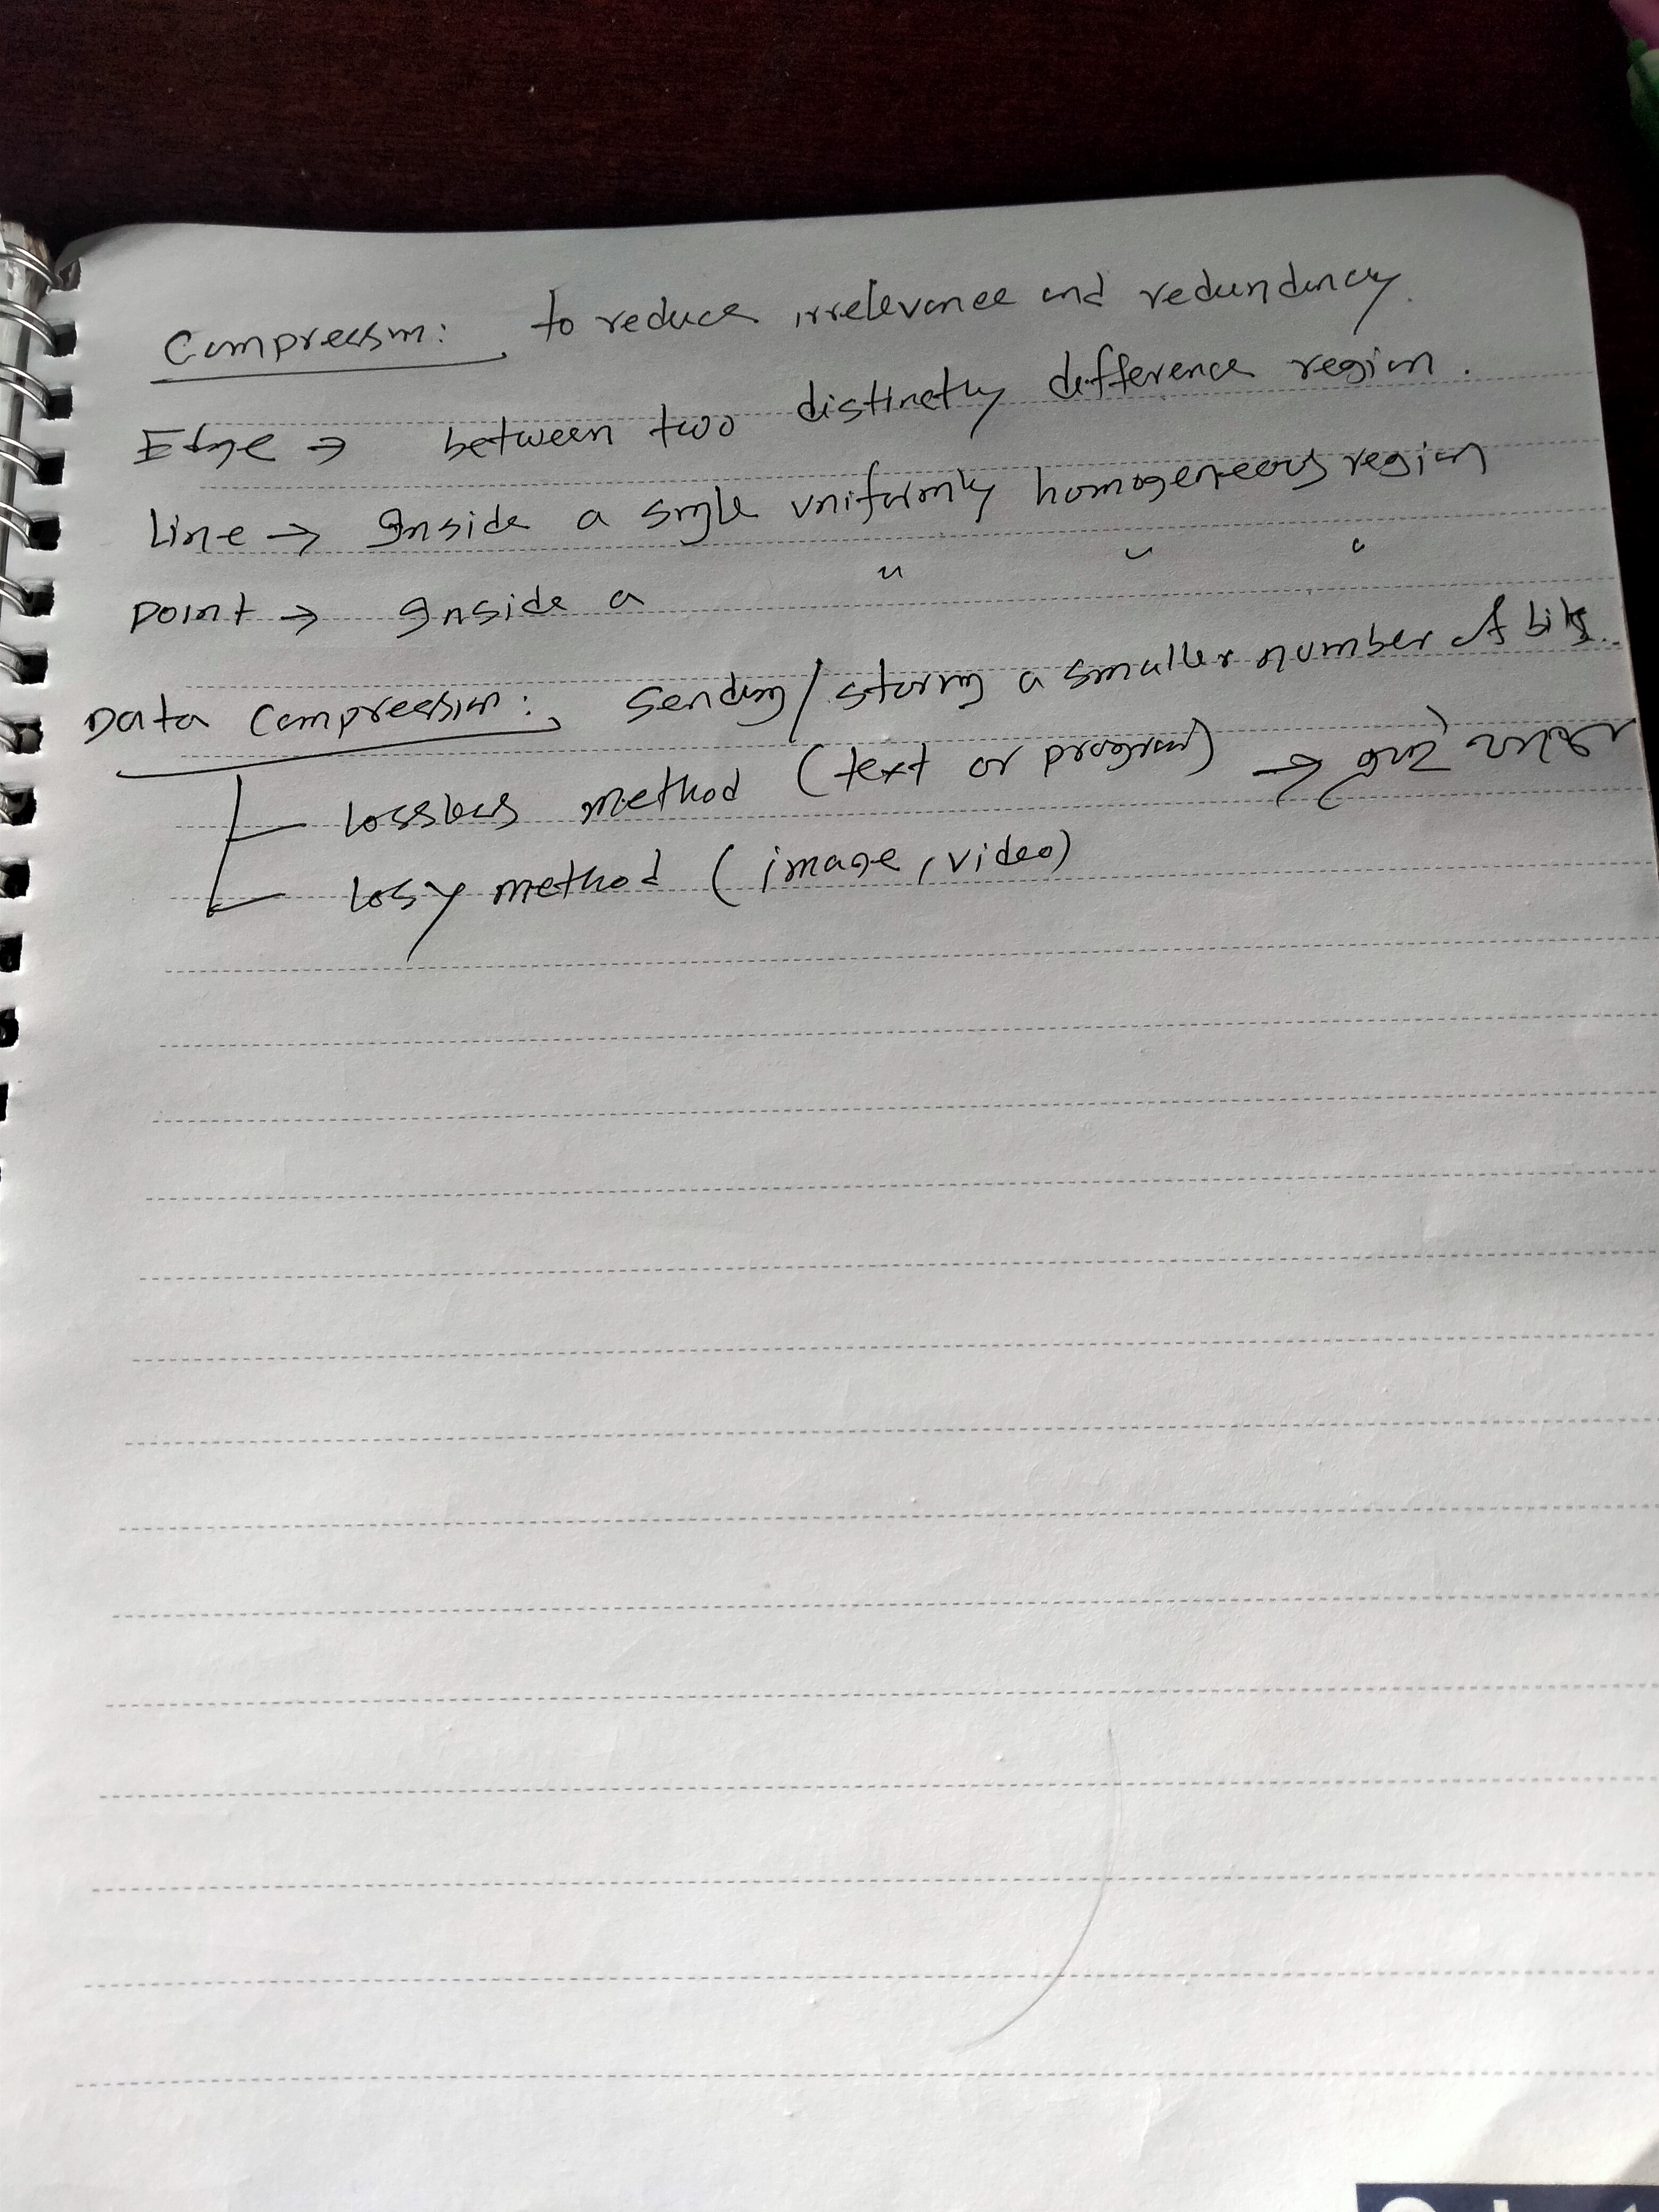 Compression: to reduce irrelevance and redundancy.
Edge → between two distinctly difference region.
Line → Inside a single uniformly homogeneous region
Point → Inside a " " "
Data Compression: Sending/storing a smaller number of bits.
Lossless method (text or program) →
Lossy method (image, video)